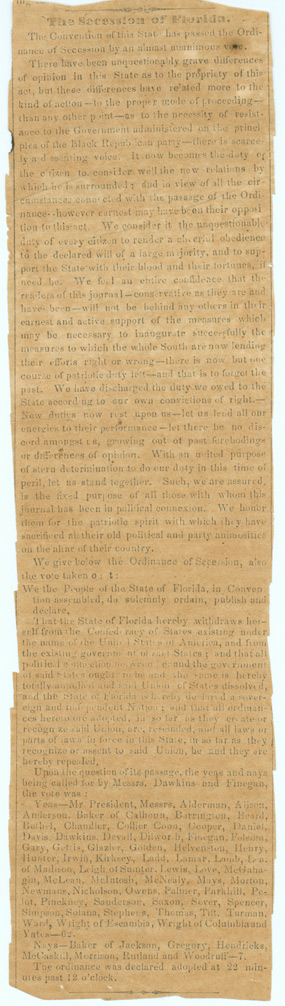 The Secession of Florida.
The Convention of this State has passed the Ordi-
nance of Secession by an almost unanimous vote.
There have been unquestionably grave differences
of opinion in this State as to the propriety of this
act, but these differences have related more to the
kind of action—to the proper mode of proceeding—
than any other point—as to the necessity of resist-
ance to the Government administered on the princi
ples of the Black Republican party—there is scarce-
ly a dissenting voice. It now becomes the duty of
the citizen to consider well the new relations by
which he is surrounded; and in view of all the cir-
cumstances connected with the passage of the Ordi-
nance—however earnest may have been their opposi
tion to this act. We consider it the unquestionable
duty of every citizen to render a cheerful obedience
to the declared will of a large majority, and to sup-
port the State with their blood and their fortunes, if
need be. We feel an entire confidence that the
readers of this journal—conservative as they are and
have been—will not be behind any others in their
earnest and active support of the measures which
may be necessary to inaugurate successfully the
measures to which the whole South are now lending
their efforts right or wrong—there is now but one
course of patriotic duty left—and that is to forget the
past. We have discharged the duty we owed to the
State according to our own convictions of right.—
New duties now rest upon us—let us lend all our
energies to their performance—let there be no dis-
cord amongst us, growing out of past forebodings
or differences of opinion. With an united purpose
of stern determination to do our duty in this time of
peril, let us stand together. Such, we are assured,
is the fixed purpose of all those with whom this
journal has been in political connexion. We honor
them for the patriotic spirit with which they have
sacrificed all their old political and party animosities
on the altar of their country.
We give below the Ordinance of Secession, also
the vote taken on it:
We the People of the State of Florida, in Conven
tion assembled, do solemnly ordain, publish and
declare,
That the State of Florida hereby withdraws her-
self from the Confederacy of States existing under
the name of the United States of America, and from
the existing government of said States; and that all
political connection between her and the government
of said States ought to be and the same is hereby
totally annulled and said Union of States dissolved,
and the State of Florida is hereby declared a sover-
eign and independent Nation; and that all ordinan-
ces heretofore adopted, in so far as they create or
recognize said Union, are rescinded, and all laws or
parts of laws in force in this State, in so far as they
recognize or assent to said Union, be and they are
hereby repealed.
Upon the question of its passage, the yeas and nays
being called for by Messrs. Dawkins and Finegan,
the vote was:
Yeas—Mr. President, Messrs. Alderman, Alison,
Anderson, Baker of Calhoun, Barrington, Beard,
Bethel, Chandler, Collier Coon, Cooper, Daniel,
Davis, Dawkins, Devall, Dilworth, Finegan, Folsom,
Gary, Gettis, Glazier, Golden, Helvenston, Henry,
Hunter, Irwin, Kirksey, Ladd, Lamar, Leea
of Madison, Leigh of Sumter, Lewis, Love, McGaha-
gin, McLean, McIntosh, McNealy, Mays, Morton,
Newmans, Nicholson, Owens, Palmer, Parkhill, Pe-
lot, Pinckney, Sanderson, Saxon, Sever, Spencer,
Simpson, Solana, Stephens, Thomas, Tift, Turman,
Ward, Wright of Escambia, Wright of Columbia and
Yates—62.
Nays—Baker of Jackson, Gregory, Hendricks,
McCaskill, Morrison, Rutland and Woodruff—7.
The ordinance was declared adopted at 22 min-
utes past 12 o'clock.